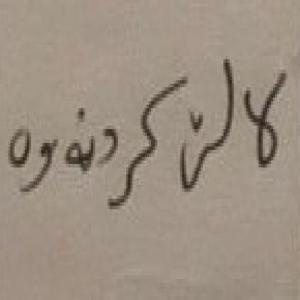 کاڵێکردنەوە